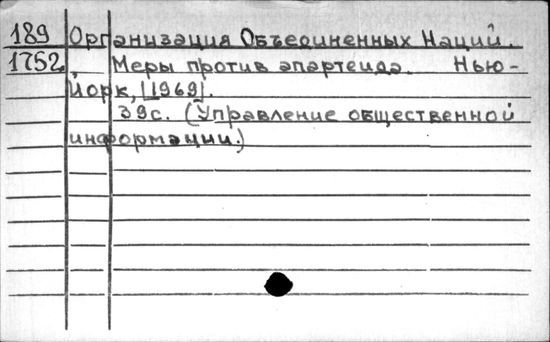 189 Организация Объединенных Наций.
1752 Меры против апартеида. Нью-
Йорк, [1969].
39с. (Управление общественной
информации.)